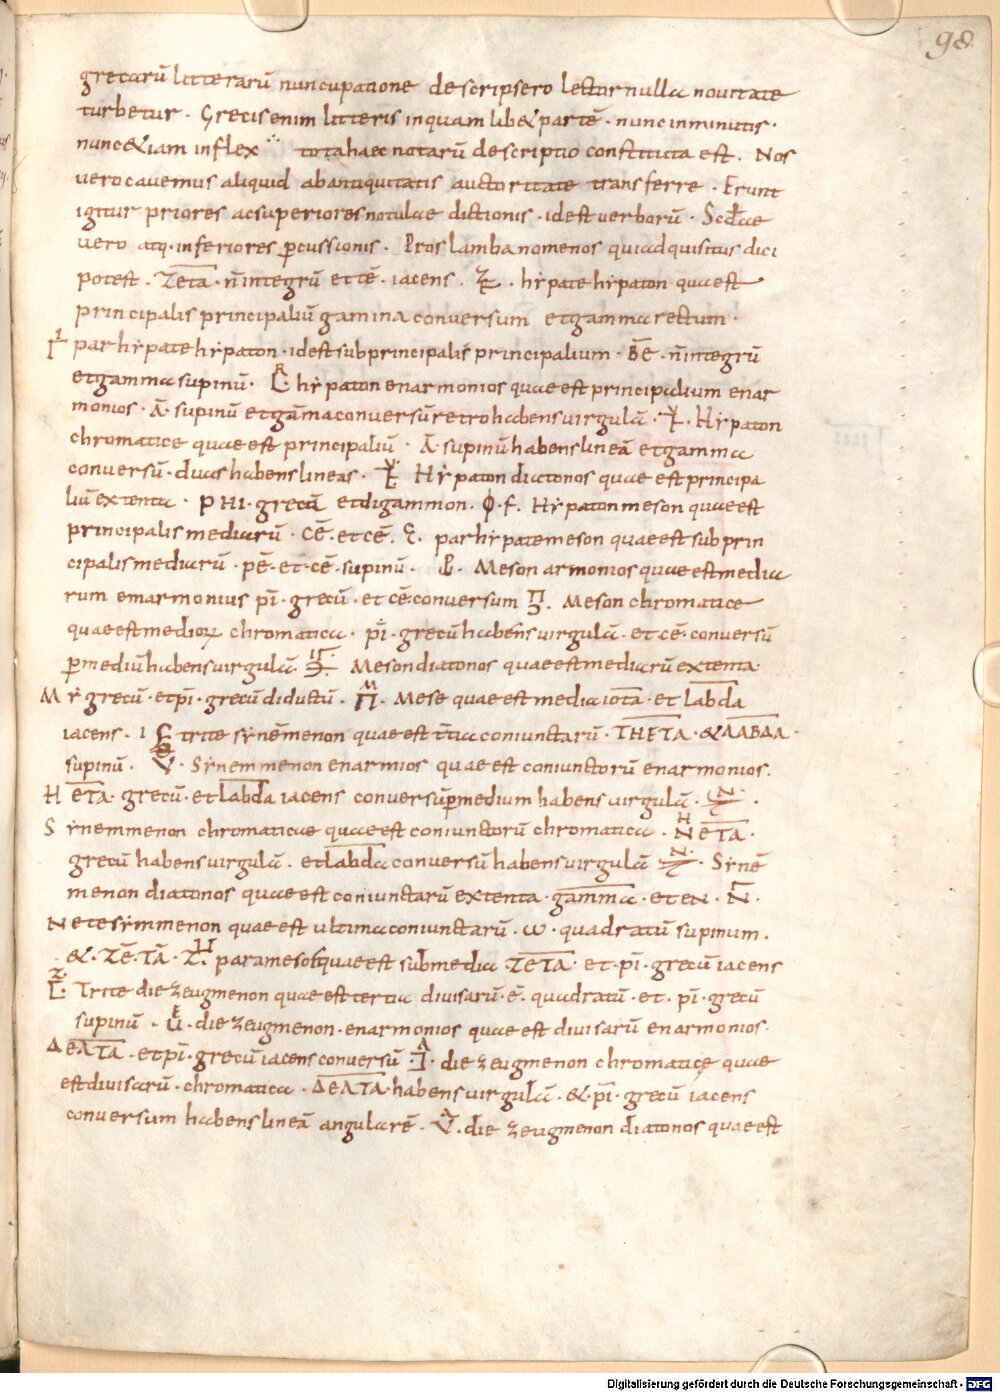 98
grecarū litterarū nuncupatione descripsero lector nulla novitate
turbetur · Grecis enim litteris inquam lib& partē · nunc inminutis ·
nunc &iam inflex totahaec notarū descriptio constituta est. Nos
vero cavemus aliquid abantiquitatis auctoritate transferre · Erunt
igitur priores acsuperiores notulae dictionis · idest verborū · Scdae
vero atq · inferiores pcussionis · Proslambanomenos quiadquisitus dici
potest · Zeta · n̄ integrū et tē · iacens · hypate hypaton quae est
principalis principaliū gamina conversum et gamma rectum ·
parhypate hypaton · idest subprincipalis principalium · B̄E · n̄ integrū
et gamma supinū · hypaton enarmonios quae est principalium enar
monios · Ā · supinū et gāma conversū retro habens virgulā · Hypaton
chromatice quae est principaliū · Ā · supinū habens lineā et gamma
conversū · duas habens lineas · Hypaton diatonos quae est principa
liū extenta · PHI · grecū et digammon · ϕ · F · Hypaton meson quae est
principalis mediarū · cē · et cē · C · parhypate meson quae est subprin
cipalis mediarū · pē · et · cē · supinū · Meson armonios quae est media
rum enarmonius pī · grecū · et cē · conversum Meson chromatice
quae est medioꝝ chromatica · pī · grecū habens virgulā · et cē · conversū
p mediū habens virgulā · Meson diatonos quae est mediarū extenta ·
My grecū · et pī · grecū diductū · Mese quae est media iota · et labda
iacens · I trite synēmenon quae est tertia coniunctarū · THETA · & LABDA ·
supinū · Synemmenon enarmios quae est coniunctorū enarmonios ·
H ETA · grecū · et labda iacens conversū p medium habens virgulā ·
Synemmenon chromaticae quae est coniunctorū chromatica · H N ETA ·
grecū habens virgulā · et labda conversū habens virgulā · Synē
menon diatonos quae est coniunctarū extenta · gamma · et EN · N ·
Nete symmenon quae est ultima coniunctarū · ω · quadratū supinum ·
& · ZE · TA · Z · paramesos quae est submedia · ZETA · et · pī · grecū iacens
Trite diezeugmenon quae est tertia divisarū · ē · quadratū · et · pī · grecū
supinū · diezeugmenon · enarmonios quae est divisarū enarmonios ·
ΔEΛTA · et pī · grecū iacens conversū · diezeugmenon chromatice quae
est divisarū · chromatica · ΔEΛTA · habens virgulā · & pī · grecū iacens
conversum habens lineā angularē · diezeugmenon diatonos quae est
Digitalisierung gefördert durch die Deutsche Forschungsgemeinschaft - DFG